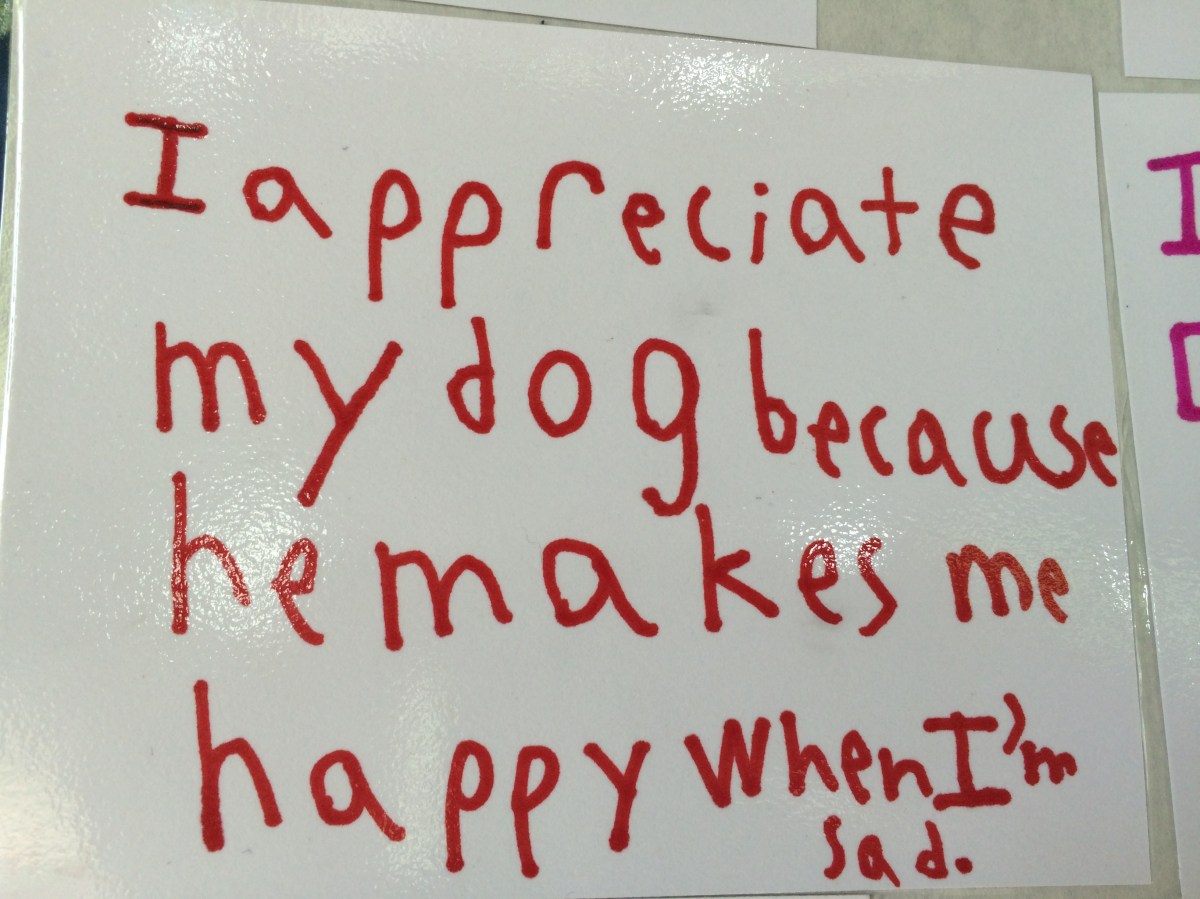 I appreciate
my dog because
he makes me
happy when I'm
sad.
I